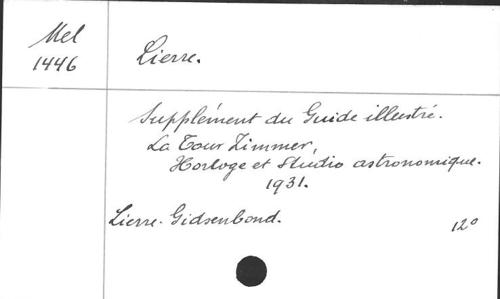 Mel
1446
Lierre.
Supplément du Guide illustré.
La Tour Zimmer,
Horloge et Studio astronomique.
1931.
Lierre. Gidsenbond.
12°